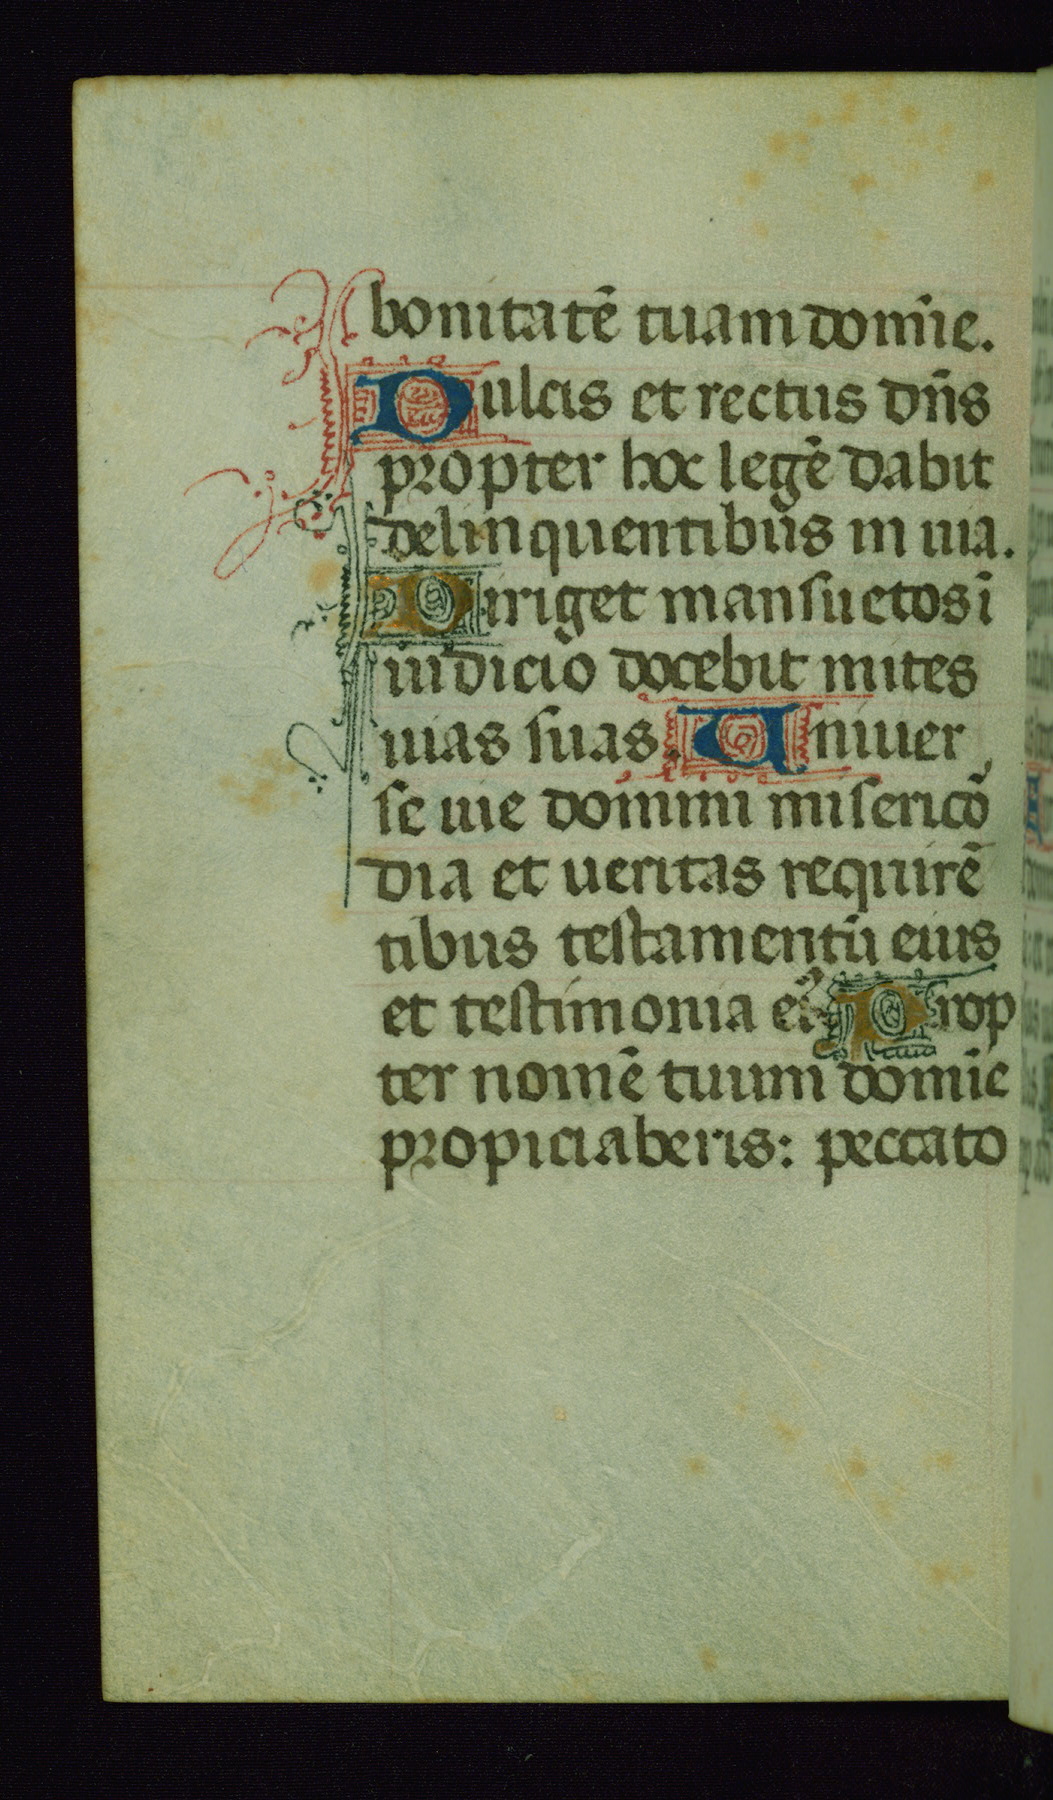 bonitatē tuam domīe.
Dulcis et rectus dn̄s
propter hoc legē dabit
delinquentibus in uia.
Diriget mansuetos ī
iudicio docebit mites
uias suas. Uniuer
se uie domini misericō
dia et ueritas requirē
tibus testamentū eius
et testimonia ei᷒ Prop
ter nomē tuum domīe
propiciaberis: peccato